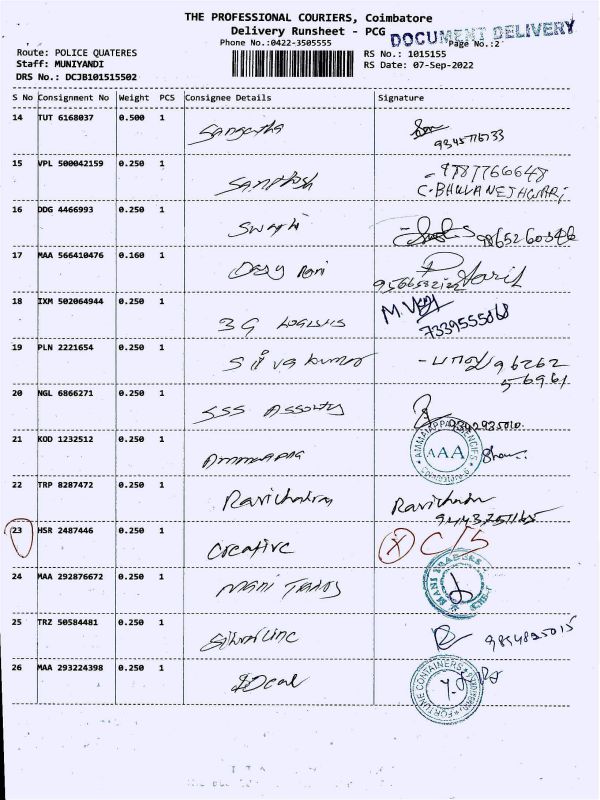 THE PROFESSIONAL COURIERS, Coimbatore
Delivery Runsheet - PCG
DOCUMENT DELIVERY
Phone No.:0422-3505555
Page No.:2
Route: POLICE QUATERES
RS No.: 1015155
Staff: MUNIYANDI
RS Date: 07-Sep-2022
DRS No.: DCJB101515502
S No Consignment No Weight PCS Consignee Details Signature
14 TUT 6168037 0.500 1 Sangeetha
15 VPL 500042159 0.250 1 Santhosh 9787766648
C.BHUVANESHWARI
16 DDG 4466993 0.250 1 Swathi 9865260346
17 MAA 566410476 0.160 1 Rani
18 IXM 502064944 0.250 1 3G Logistics 7339555068
19 PLN 2221654 0.250 1 Sivakumar 96262
56961
20 NGL 6866271 0.250 1 SSS 9342935010
21 KOD 1232512 0.250 1 Ammaiappa AMMAIAPPA AGENCIES AAA
22 TRP 8287472 0.250 1 Ravichandran Ravichandran
23 HSR 2487446 0.250 1 Creative X C/S
24 MAA 292876672 0.250 1 Mani Traders MANI TRADERS
25 TRZ 50584481 0.250 1 Silverline
26 MAA 293224398 0.250 1 Ideal FORTUNE CONTAINERS